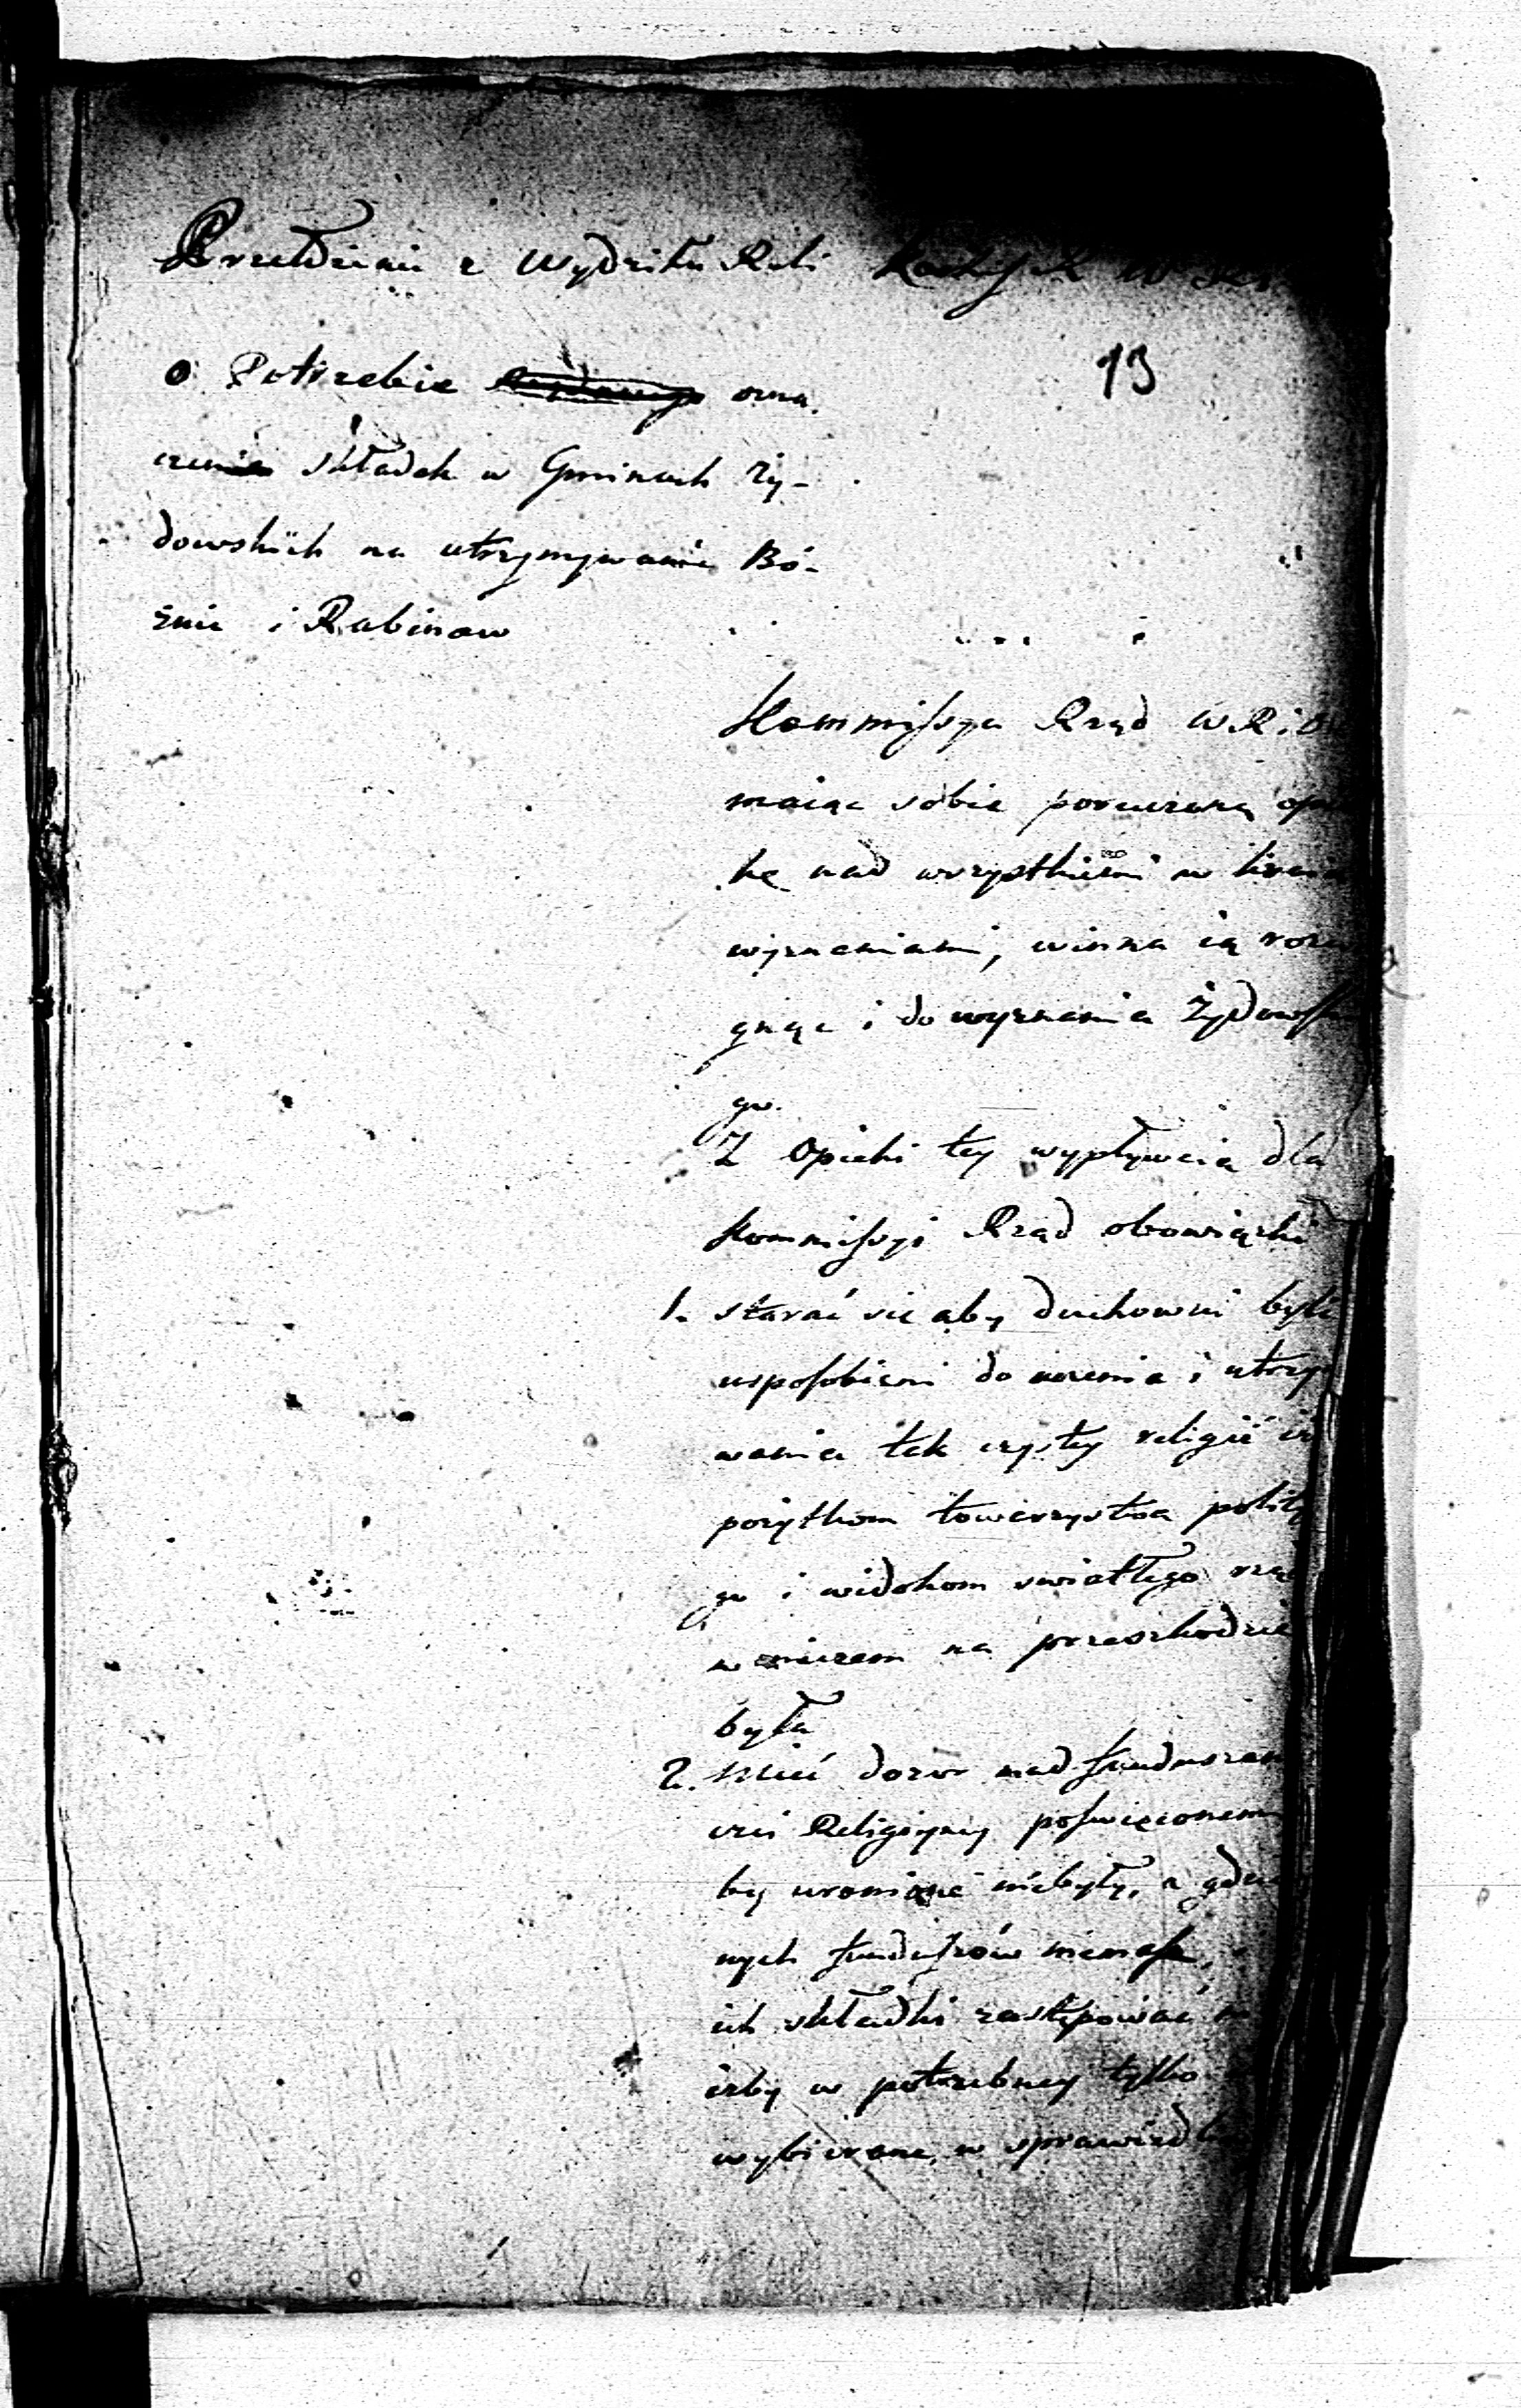 z Wydziału
13
o Potrzebie ozna
czenia składek w Gminach Ży-
dowskich na utrzymywanie Bó-
żnic i Rabinow
Kommissya Rząd W. R. i
maiąc sobie poruczoną
kę nad wszystkiemi w
wyznaniami, winna ią
gnąć i do wyznania Żydows
go.
Z Opieki tey wypływaią dla
Kommissyi Rząd obowiązki
1. starać sie aby duchowni byli
usposobieni do uczenia i utrzy
wania tak czystey religii
pożytkom towarzystwa polity
go i widokom swiatłego rzą
w niczem na przeszkodzie
była
2. Mieć dozor nad funduszam
Religiyney poswięconem
by uronione niebyły, a gdzie
nych funduszów niemasz,
ich składki zastępować
iżby w potrzebney tylko
wybierane, w sprawiedl